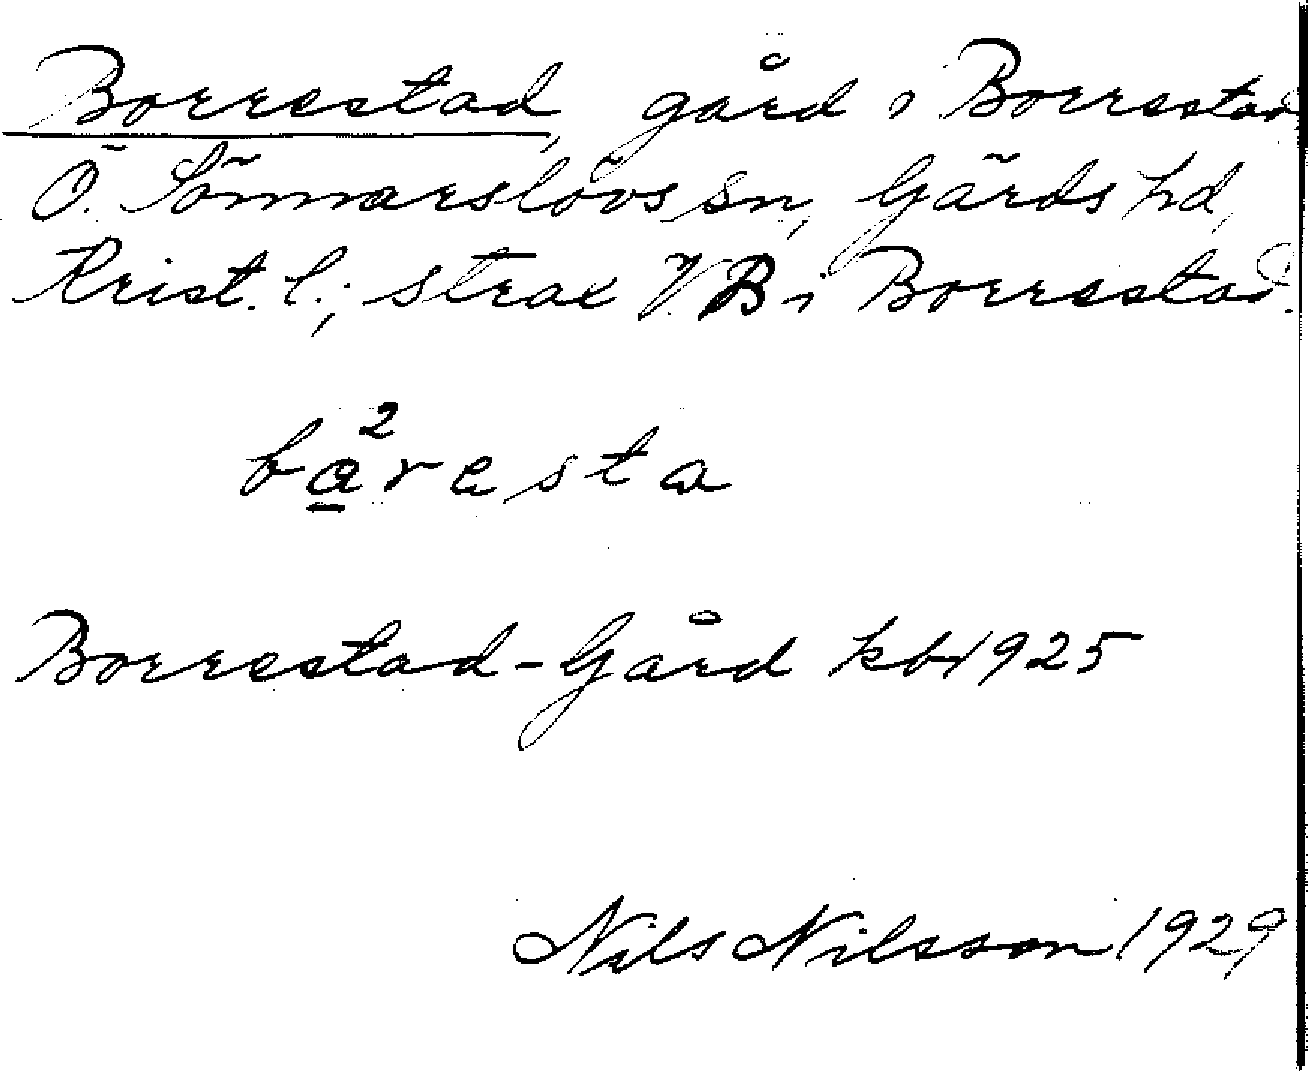 Borrestad, gård i Borrestad
Ö. Sönnarslövs sn, Gärds hd,
Krist. l.; strax V. B i Borrestad.
ba̲²resta
Borrestad-Gård kb 1925
Nils Nilsson 1929